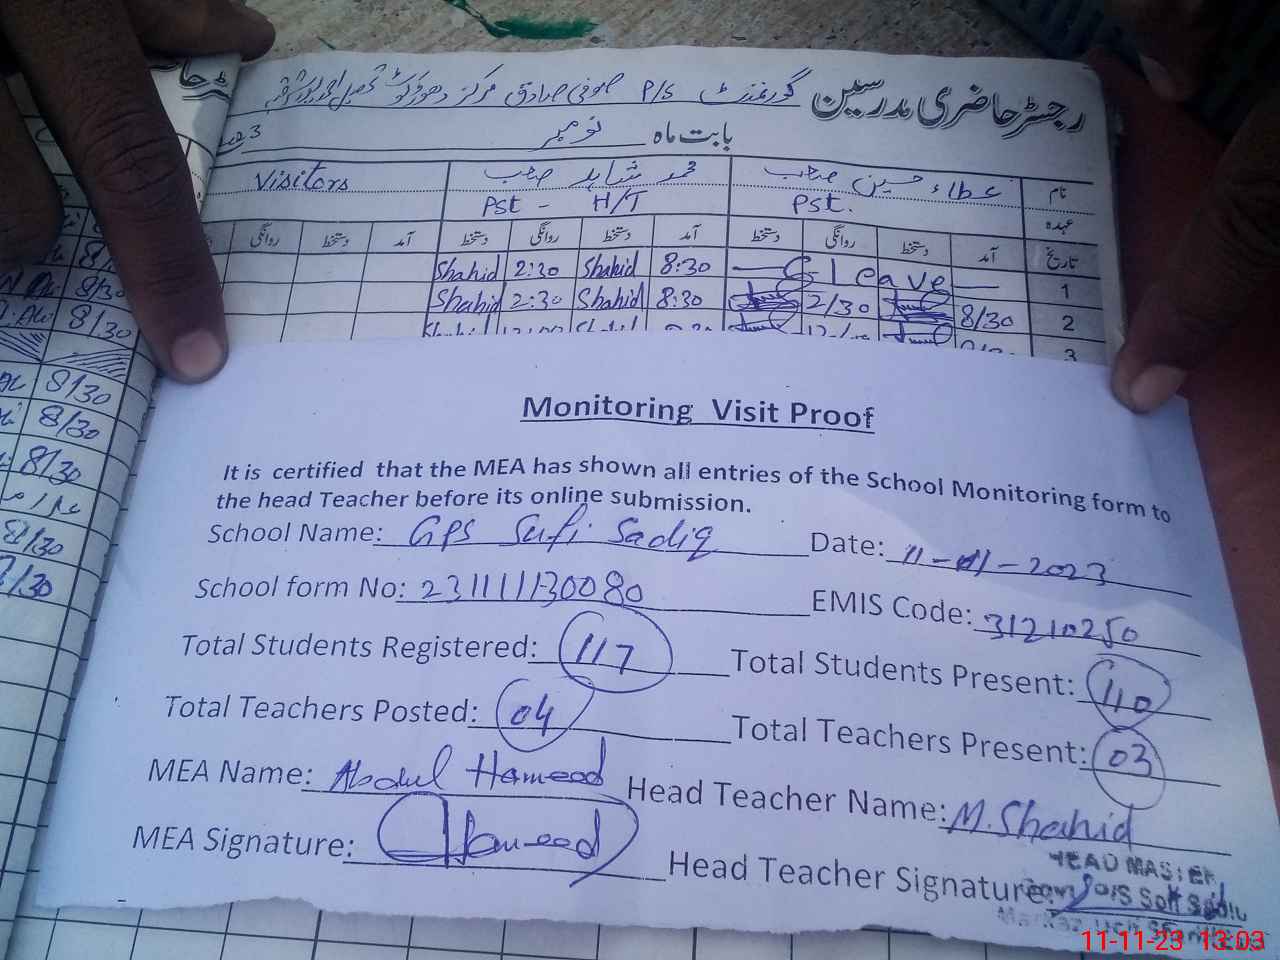 رجسٹر حاضری مدرسین گورنمنٹ P/S صوفی صادق مرکز دھوڑکوٹ تحصیل احمد پور شرقیہ
بابت ماہ نومبر
نام عطاء حسین صاحب محمد شاہد صاحب Visitors
عہدہ Pst. Pst - H/T
تاریخ آمد دستخط روانگی دستخط آمد دستخط روانگی دستخط آمد دستخط روانگی
1 — C. Leave — 8:30 Shahid 2:30 Shahid
2 8/30 2/30 8:30 Shahid 2:30 Shahid
3
8/30
8/30
8/30
8/30
8/30
8/30
Monitoring Visit Proof
It is certified that the MEA has shown all entries of the School Monitoring form to
the head Teacher before its online submission.
School Name: GPS Sufi Sadiq Date: 11-11-2023
School form No: 231111130080 EMIS Code: 31210250
Total Students Registered: 117 Total Students Present: 110
Total Teachers Posted: 04 Total Teachers Present: 03
MEA Name: Abdul Hameed Head Teacher Name: M. Shahid
MEA Signature: Hameed Head Teacher Signature:
HEAD MASTER
11-11-23 13:03